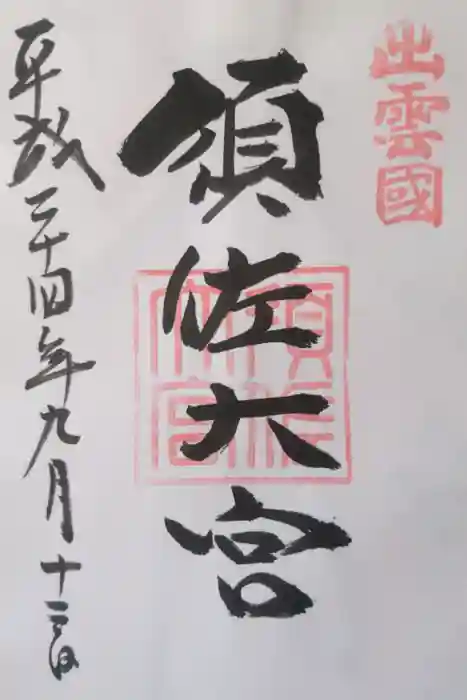 出雲國
須佐大宮
須佐大宮
平成二十四年九月十三日